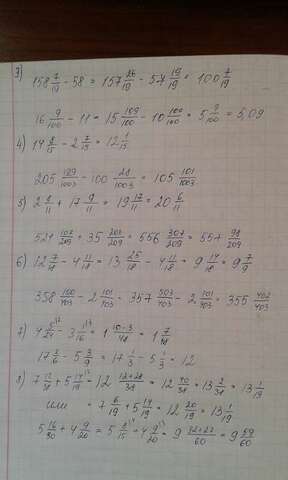 3) 158 7/19 - 58 = 157 26/19 - 57 19/19 = 100 7/19
16 9/100 - 11 = 15 109/100 - 10 100/100 = 5 9/100 = 5,09
4) 14 8/15 - 2 7/15 = 12 1/15
205 129/1003 - 100 28/1003 = 105 101/1003
5) 2 8/11 + 17 9/11 = 19 17/11 = 20 6/11
521 107/209 + 35 200/209 = 556 307/209 = 557 98/209
6) 12 7/18 - 4 11/18 = 13 25/18 - 4 11/18 = 9 14/18 = 9 7/9
358 100/403 - 2 101/403 = 357 503/403 - 2 101/403 = 355 402/403
7) 4 5/24 - 3 1/16 = 1 10-3/48 = 1 7/48
17 2/6 - 5 3/9 = 17 1/3 - 5 1/3 = 12
8) 7 12/38 + 5 14/19 = 12 12+28/38 = 12 40/38 = 13 2/38 = 13 1/19
или = 7 6/19 + 5 14/19 = 12 20/19 = 13 1/19
5 16/30 + 4 9/20 = 5 8/15 + 4 9/20 = 9 32+27/60 = 9 59/60